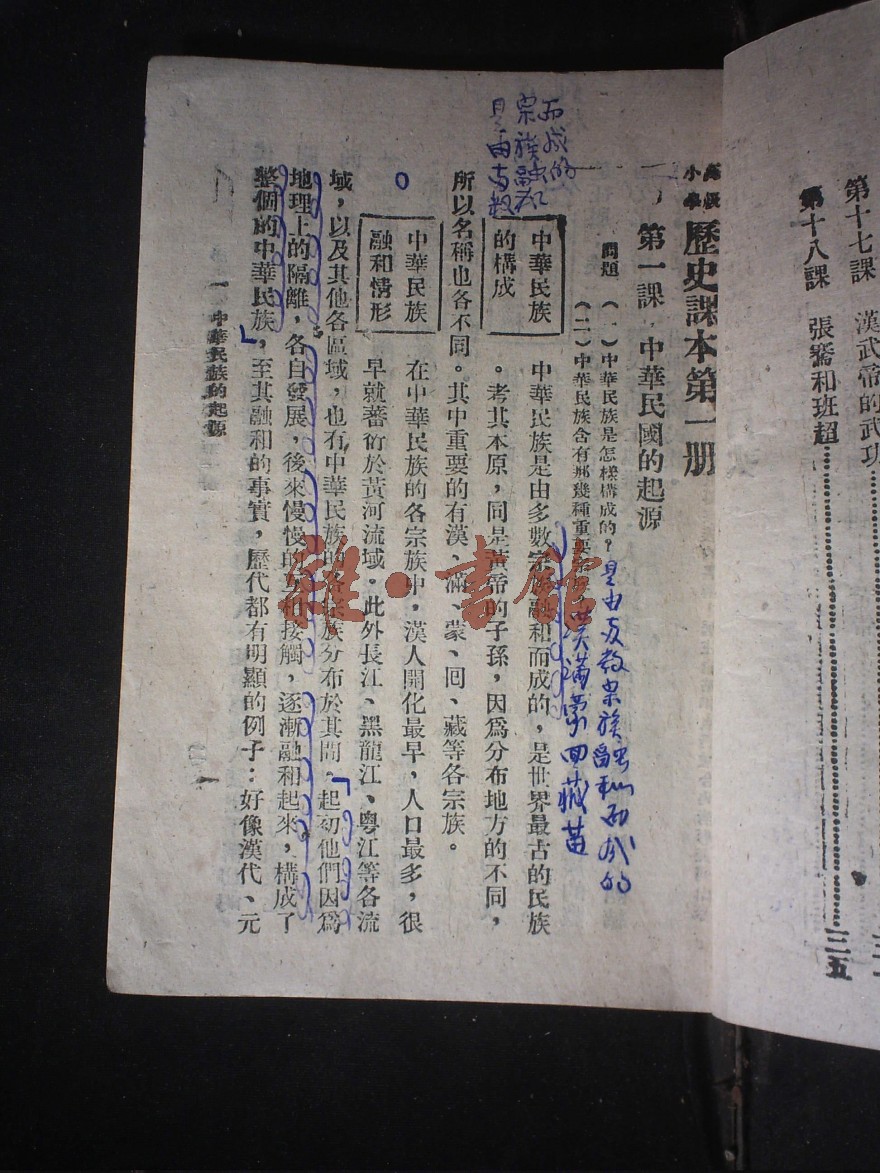 第十七課 漢武帝的武功
第十八課 張騫和班超 三五
高級
小學
歷史課本第一册
第一課 中華民國的起源
問題
(一)中華民族是怎樣構成的?是由多数宗族融和而成的
(二)中華民族含有那幾種重要宗族 漢满蒙回藏苗
而成的
宗族融和
是由多数
中華民族
的構成
中華民族是由多數宗族融和而成的,是世界最古的民族
。考其本原,同是黃帝的子孫,因爲分布地方的不同,
所以名稱也各不同。其中重要的有漢、滿、蒙、回、藏等各宗族。
中華民族
融和情形
在中華民族的各宗族中,漢人開化最早,人口最多,很
早就蕃衍於黃河流域。此外長江、黑龍江、粵江等各流
域,以及其他各區域,也有中華民族的各宗族分布於其間。起初他們因爲
地理上的隔離,各自發展,後來慢慢的互相接觸,逐漸融和起來,構成了
整個的中華民族,至其融和的事實,歷代都有明顯的例子:好像漢代、元
一 中華民族的起源
一
雜·書館